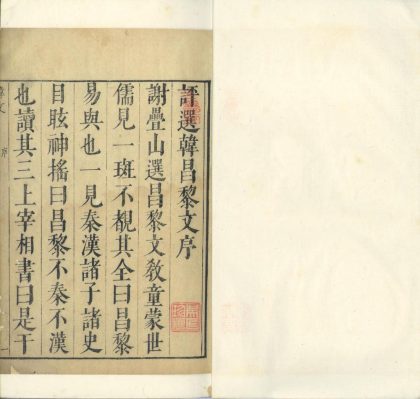 評選韓昌黎文序
謝疊山選昌黎文教童蒙世
儒見一斑不覩其全曰昌黎
易與也一見秦漢諸子諸史
目眩神搖曰昌黎不秦不漢
也讀其三上宰相書曰是干
序
一